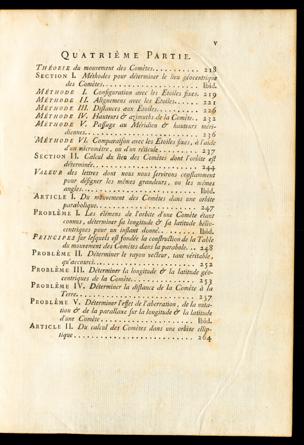 v
QUATRIÈME PARTIE.
THÉORIE du mouvement des Comètes............ 218
SECTION I. Méthodes pour déterminer le lieu géocentrique
des Comètes.................... Ibid.
MÉTHODE I. Configuration avec les Etoiles fixes. 219
MÉTHODE II. Alignemens avec les Etoiles...... 221
MÉTHODE III. Distances aux Etoiles......... 226
MÉTHODE IV. Hauteurs & azimuths de la Comète.. 232
MÉTHODE V. Passage au Méridien & hauteurs méri-
diennes......................... 236
MÉTHODE VI. Comparaison avec les Etoiles fixes, à l'aide
d'un micromètre, ou d'un réticule........ 237
SECTION II. Calcul du lieu des Comètes dont l'orbite est
déterminée..................... 244
VALEUR des lettres dont nous nous servirons constamment
pour désigner les mêmes grandeurs, ou les mêmes
angles......................... Ibid.
ARTICLE I. Du mouvement des Comètes dans une orbite
parabolique..................... 247
PROBLÊME I. Les élémens de l'orbite d'une Comète étant
connus, déterminer sa longitude & sa latitude hélio-
centriques pour un instant donné......... Ibid.
PRINCIPES sur lesquels est fondée la construction de la Table
du mouvement des Comètes dans la parabole... 248
PROBLÊME II. Déterminer le rayon vecteur, tant véritable,
qu'accourci...................... 252
PROBLÊME III. Déterminer la longitude & la latitude géo-
centriques de la Comète............... 253
PROBLÊME IV. Déterminer la distance de la Comète à la
Terre.......................... 257
PROBLÊME V. Déterminer l'effet de l'aberration, de la nuta-
tion & de la parallaxe sur la longitude & la latitude
d'une Comète.................... Ibid.
ARTICLE II. Du calcul des Comètes dans une orbite ellip-
tique.......................... 264